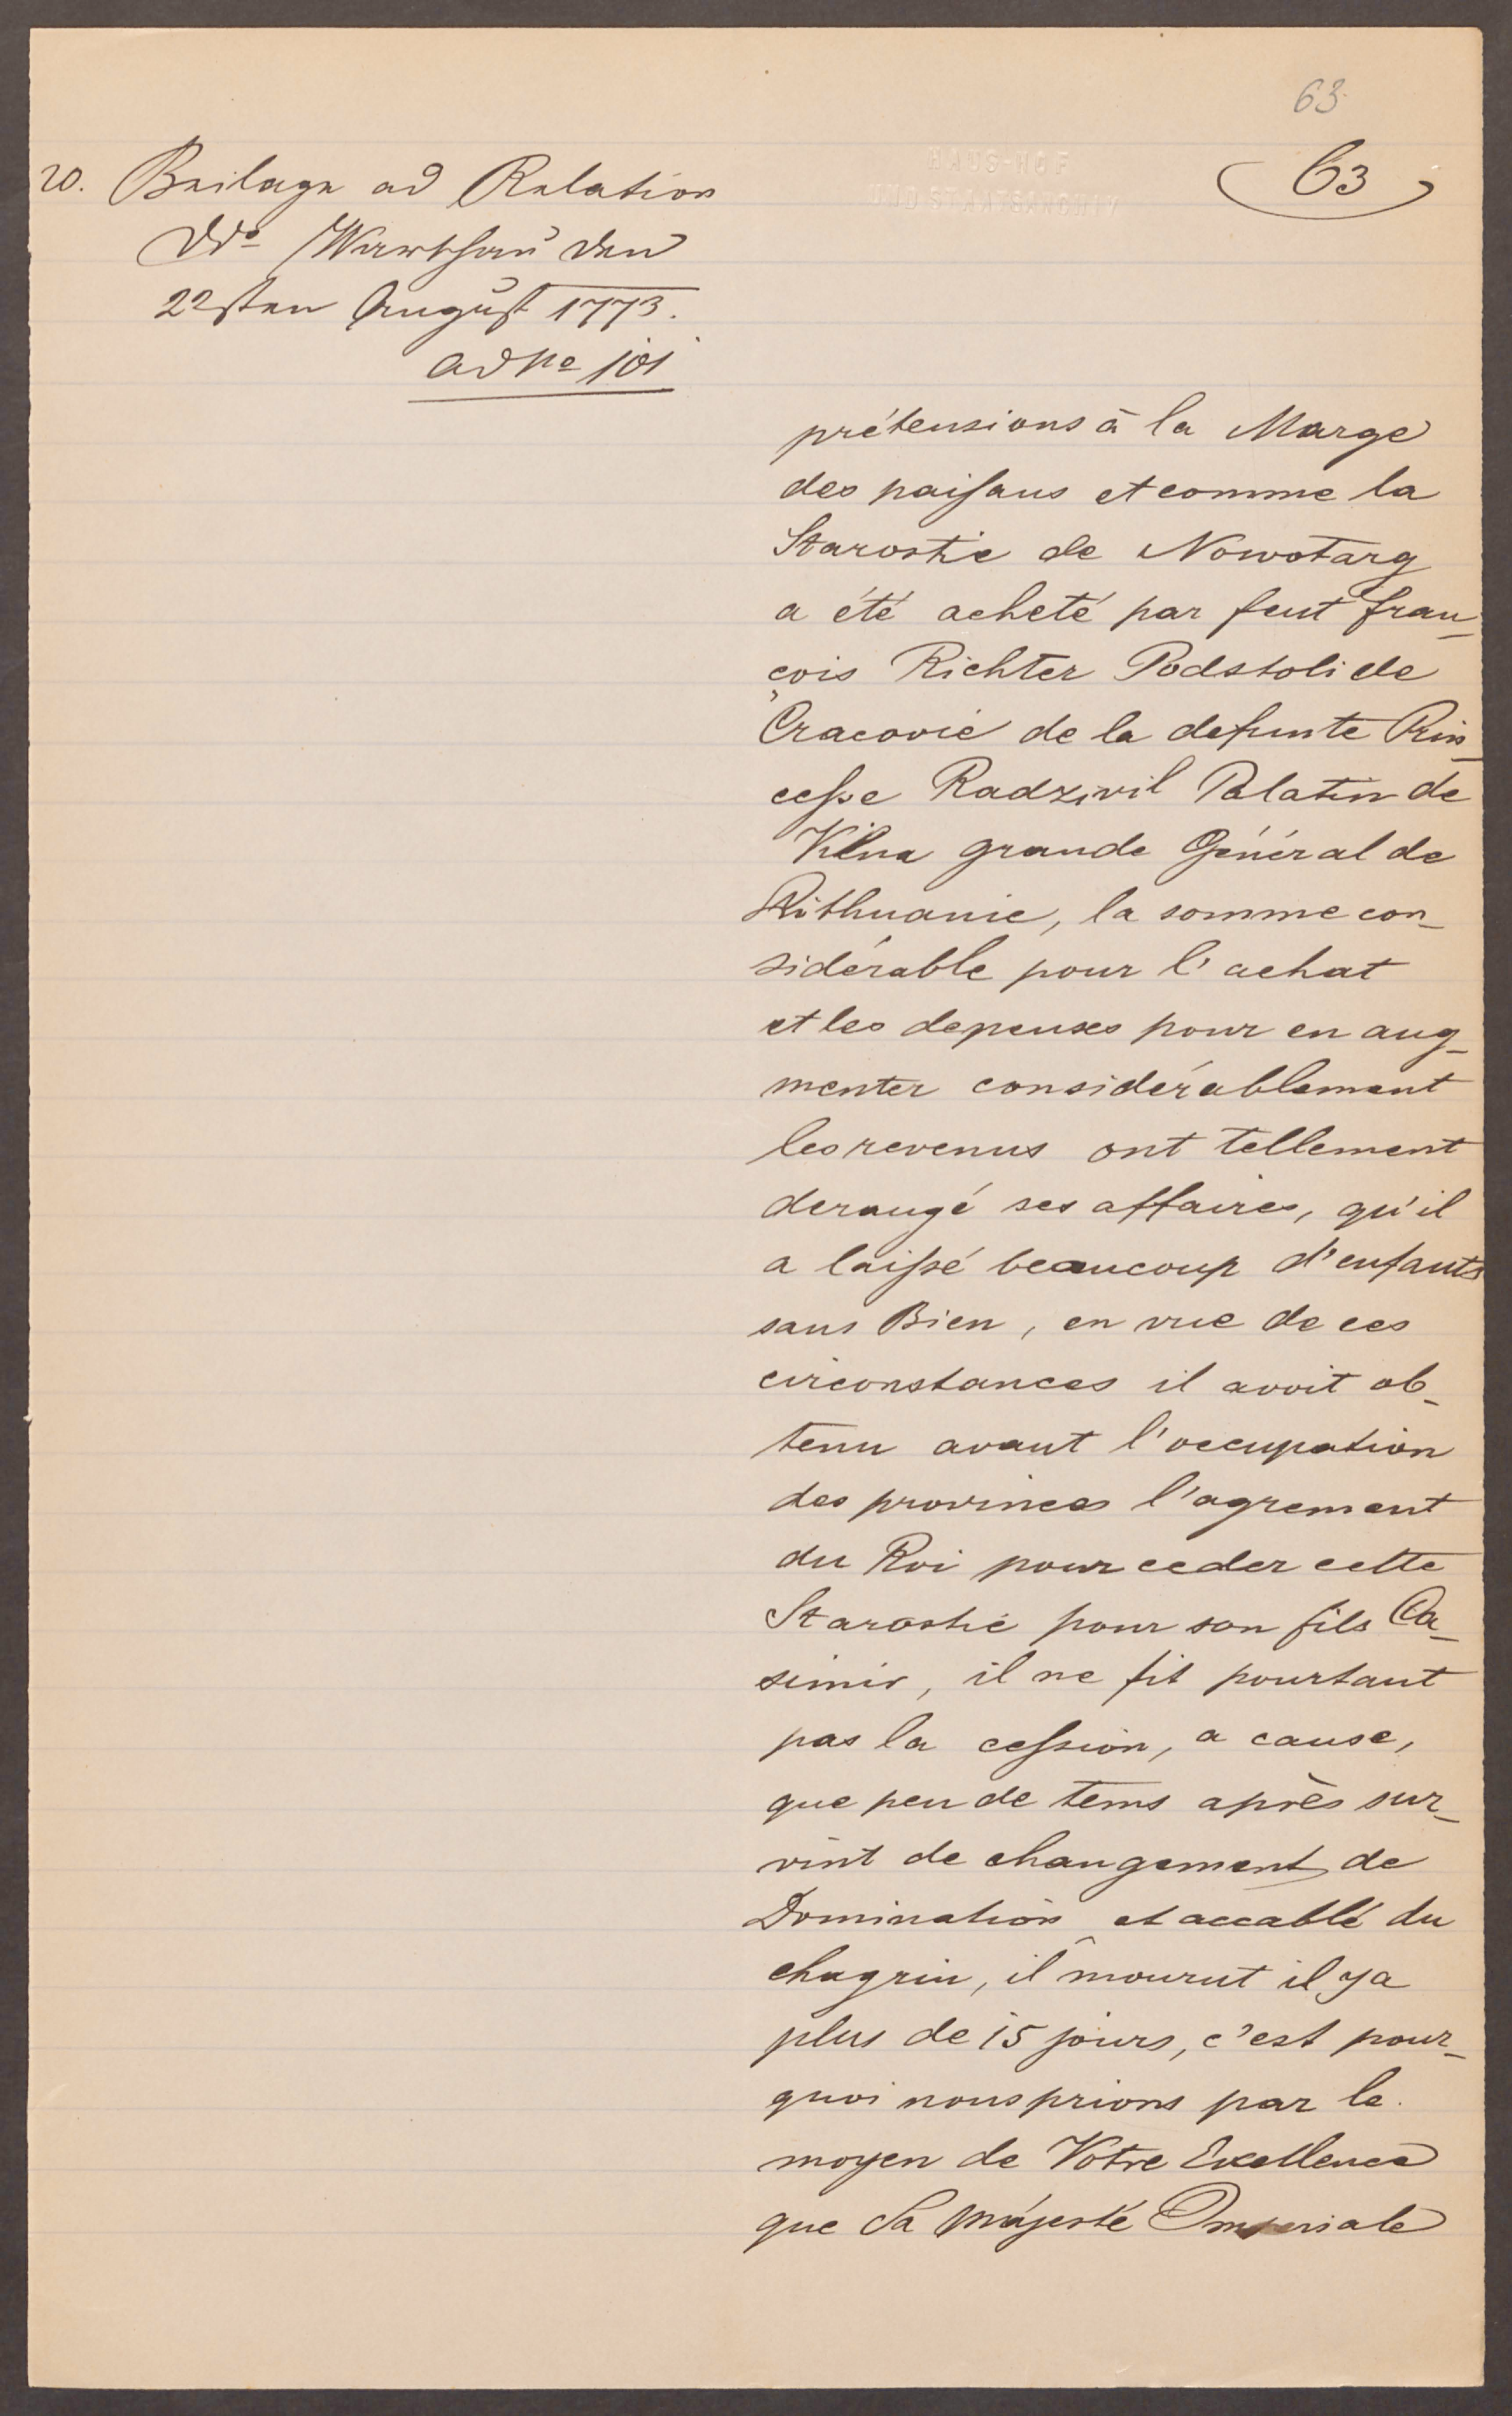 63
63
20. Beilage ad Relation
Ddo Warschau den
22sten August 1773.
ad No 101
HAUS-HOF
UND STAATSARCHIV
prétensions à la Marge
des paisans et comme la
Starostie de Nowotarg
a été acheté par feut Fran_
çois Richter Podstoli de
Cracovie de la defunte Prin_
cesse Radzivil Palatin de
Vilna grande Général de
Lithuanie, la somme con_
sidérable pour l'achat
et les depenses pour en aug_
menter considérablement
les revenus ont tellement
derangé ses affaires, qu'il
a laissé beaucoup d'enfants
sans Bien, en vue de ces
circonstances il avoit ob_
tenu avant l'occupation
des provinces l'agrement
du Roi pour ceder cette
Starostie pour son fils Ca_
simir, il ne fit pourtant
pas la cession, a cause,
que peu de tems après sur_
vint de changement de
Domination et accablé du
chagrin, il mourut il ya
plus de 15 jours, c'est pour_
quoi nous prions par le
moyen de Votre Excellence
que Sa Majesté Imperiale